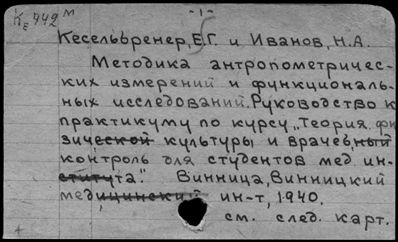 Ке 442 м
- 1 -
Кесельбренер, Е.Г. и Иванов, Н.А.
Методика антропометричес-
ких измерений и функциональ-
ных исследований. Руководство к
практикуму по курсу „Теория фи
зической культуры и врачебный
контроль для студентов мед. ин-
ститута." Винница, Винницкий
медицинский ин-т, 1940.
см. след. карт.